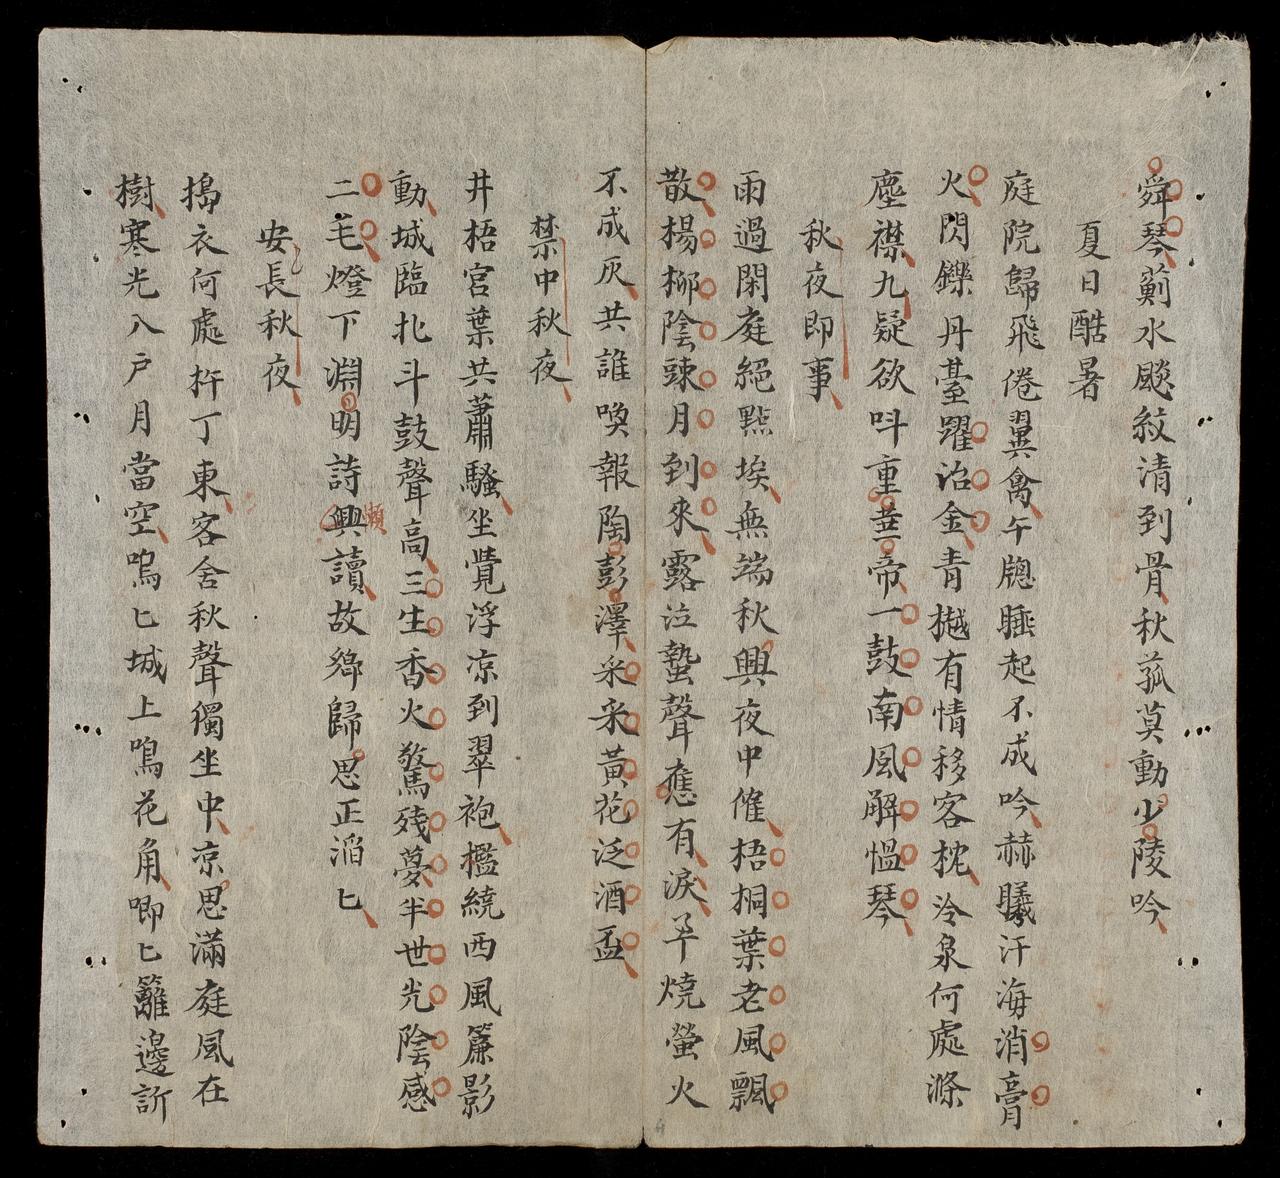 舜琴薊水颷紋清到骨秋菰莫動少陵吟
夏日酷暑
庭院歸飛倦翼禽午牕睡起不成吟赫曦汗海消膏
火閃鑠丹臺躍冶金青樾有情移客枕冷泉何處滌
塵襟九疑欲呌重華帝一鼓南風解慍琴
秋夜即事
雨過閑庭絕點埃無端秋興夜中催梧桐葉老風飄
散楊柳陰踈月到來露泣蛩聲應有淚草燒螢火
不成灰共誰喚報陶彭澤采采黃花泛酒盃
禁中秋夜
井梧宮葉共蕭騷坐覺浮凉到翠袍檻繞西風簾影
動城臨北斗鼓聲高三生香火驚殘夢半世光陰感
二毛燈下淵明詩興讀故鄉歸思正滔匕
懶
安長秋夜
搗衣何處杵丁東客舍秋聲獨坐中凉思滿庭風在
樹寒光入戶月當空嗚匕城上鳴花角唧匕籬邊訴